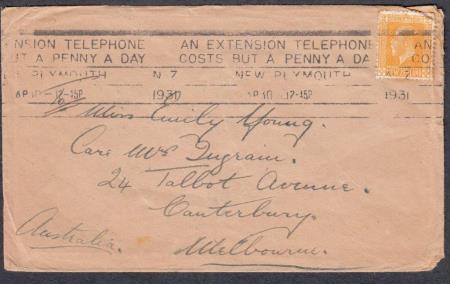 NSION TELEPHONE AN EXTENSION TELEPHONE AN
BUT A PENNY A DAY COSTS BUT A PENNY A DA CO
PLYMOUTH N.Z NEW PLYMOUTH
AP10 12-15P 1931 AP10 12-15P 1931
Miss Emily Young.
Care Mrs Ingram.
24 Talbot Avenue.
Canterbury.
Melbourne.
Australia.